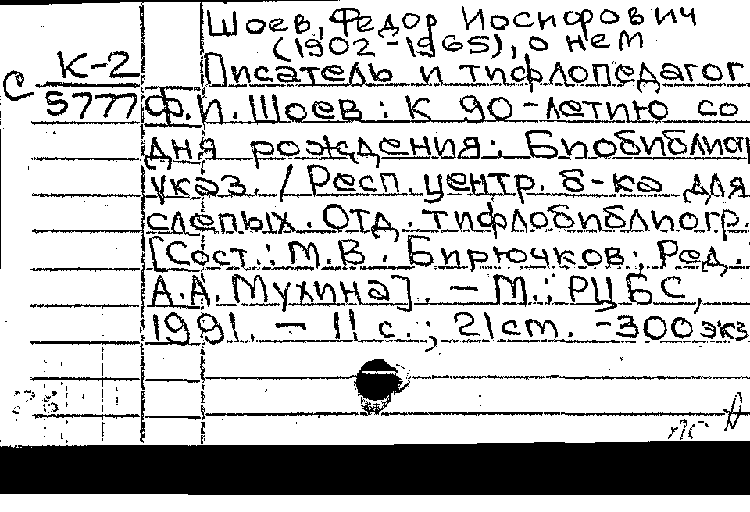 Шоев, Федор Иосифович
(1902-1965), о нем
С К-2 Писатель и тифлопедагог
5777 Ф.И. Шоев: К 90-летию со
дня рождения: Биобиблиогр
указ. / Респ. центр. б-ка для
слепых. Отд. тифлобиблиогр.
[Сост.: М.В. Бирючков; Ред.
А.А. Мухина]. - М.: РЦБС,
1991. - 11 с.; 21 см. - 300 экз